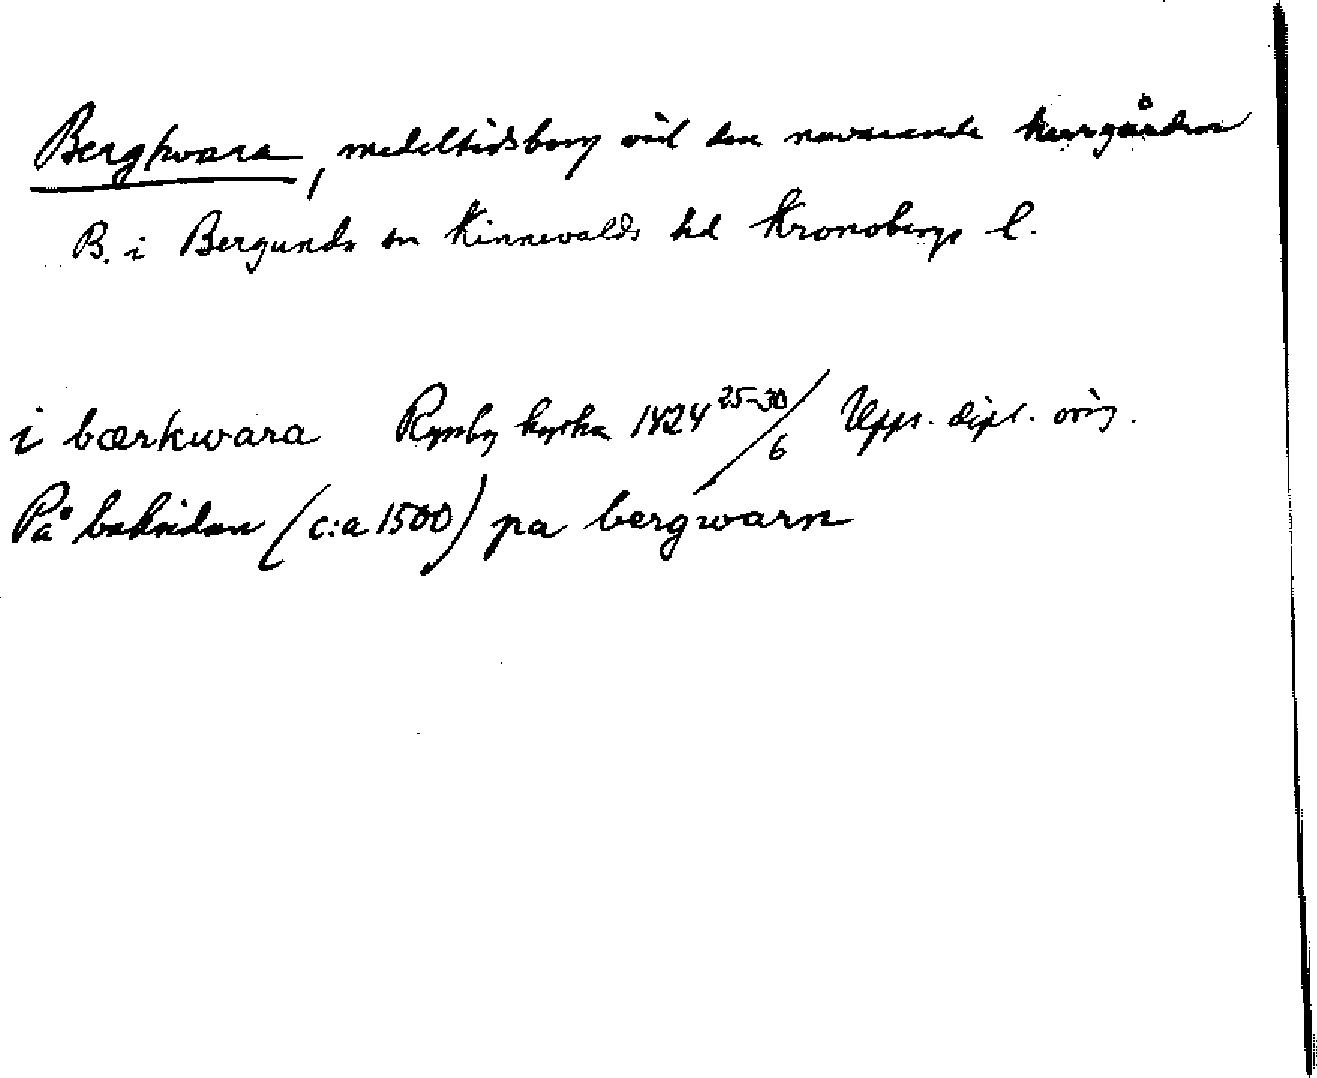 Bergkvara, medeltidsborg vid den nuvarande herrgården
B. i Bergunda sn Kinnevalds hd Kronobergs l.
i bærkwara Rynby kyrka 1424 25-30/6 Upps. dipl. orig.
På baksidan (c:a 1500) pa bergwarn